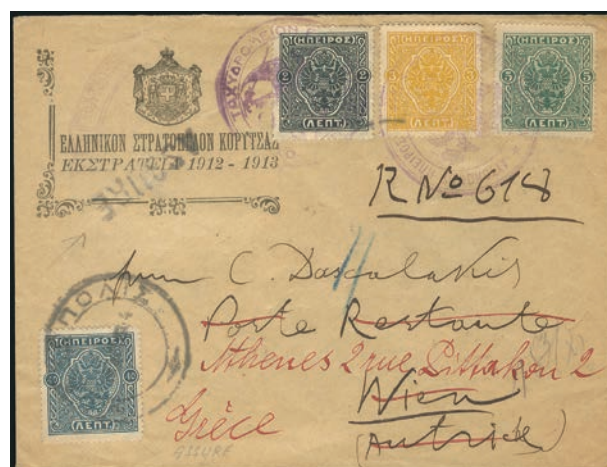 ΕΛΛΗΝΙΚΟΝ ΣΤΡΑΤΟΠΕΔΟΝ ΚΟΡΥΤΣΑΣ
ΕΚΣΤΡΑΤΕΙΑ 1912 - 1913
(ΗΠΕΙΡΟΣ)
2 2
(ΛΕΠΤ.)
(ΗΠΕΙΡΟΣ)
3 3
(ΛΕΠΤ.)
(ΗΠΕΙΡΟΣ)
5 5
(ΛΕΠΤ.)
R No 618
C. Dascalakis
Poste Restante
Athenes 2 rue Pittakou 2
Wien
Grèce
(Autriche)
ΠΟΛΙΣ
(ΗΠΕΙΡΟΣ)
40 40
(ΛΕΠΤ.)